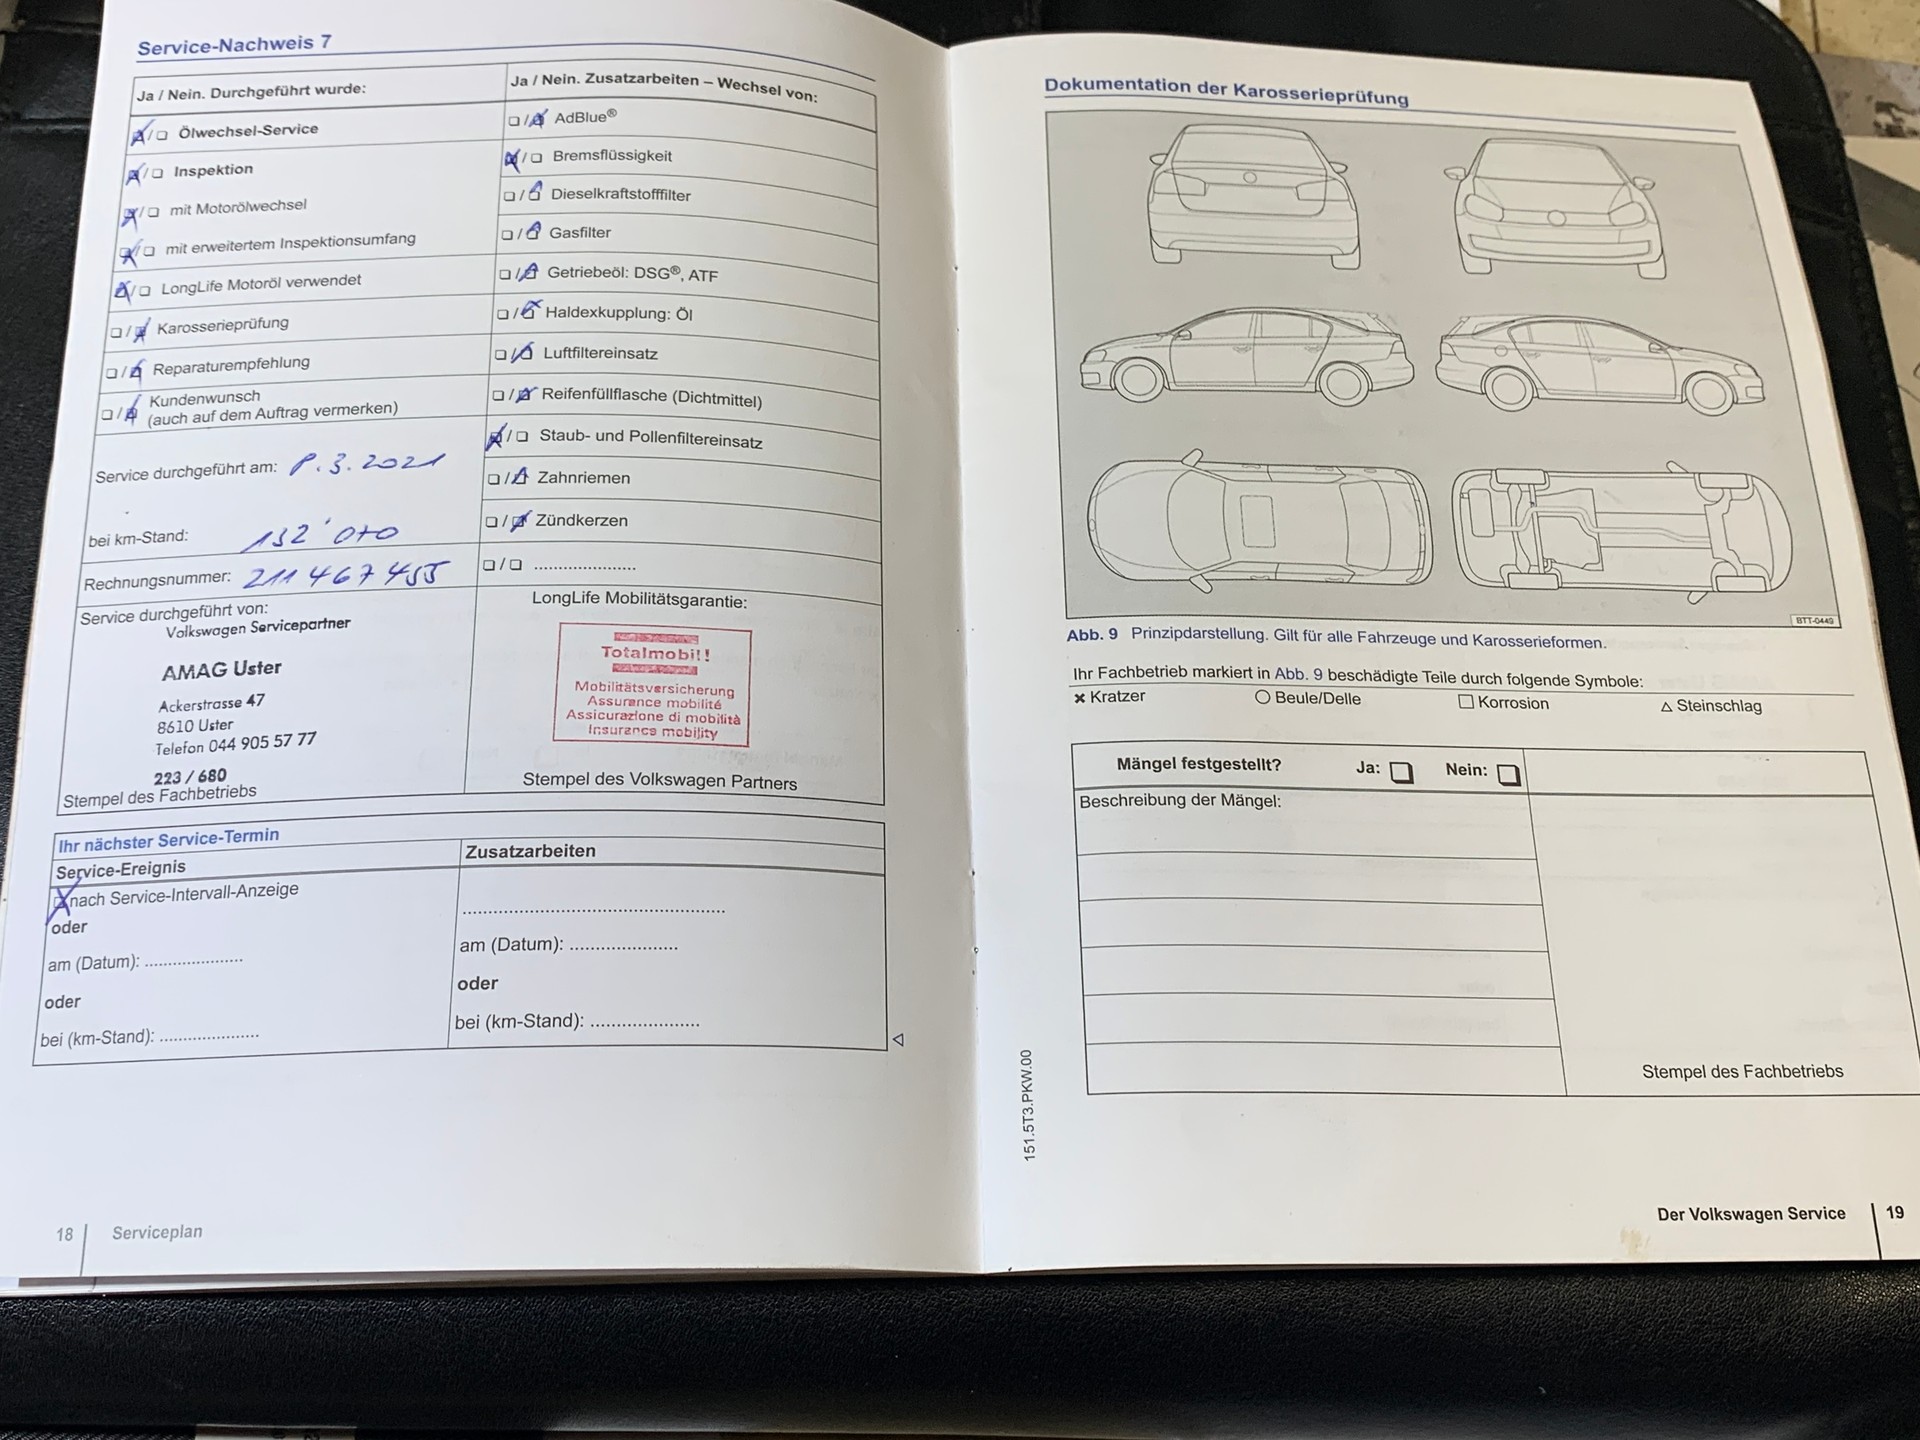 Service-Nachweis 7
Ja / Nein. Durchgeführt wurde:
/ Ölwechsel-Service
/ Inspektion
/ mit Motorölwechsel
/ mit erweitertem Inspektionsumfang
/ LongLife Motoröl verwendet
/ Karosserieprüfung
/ Reparaturempfehlung
/ Kundenwunsch
(auch auf dem Auftrag vermerken)
Service durchgeführt am: 8.3.2021
bei km-Stand: 132'070
Rechnungsnummer: 211467455
Service durchgeführt von:
Volkswagen Servicepartner
AMAG Uster
Ackerstrasse 47
8610 Uster
Telefon 044 905 57 77
223 / 680
Stempel des Fachbetriebs
Ja / Nein. Zusatzarbeiten – Wechsel von:
/ AdBlue®
/ Bremsflüssigkeit
/ Dieselkraftstofffilter
/ Gasfilter
/ Getriebeöl: DSG®, ATF
/ Haldexkupplung: Öl
/ Luftfiltereinsatz
/ Reifenfüllflasche (Dichtmittel)
/ Staub- und Pollenfiltereinsatz
/ Zahnriemen
/ Zündkerzen
/ .....................
LongLife Mobilitätsgarantie:
Totalmobil!
Mobilitätsversicherung
Assurance mobilité
Assicurazione di mobilità
Insurance mobility
Stempel des Volkswagen Partners
Ihr nächster Service-Termin
Service-Ereignis
nach Service-Intervall-Anzeige
oder
am (Datum): .....................
oder
bei (km-Stand): .....................
Zusatzarbeiten
.....................................................
am (Datum): .....................
oder
bei (km-Stand): .....................
18 Serviceplan
Dokumentation der Karosserieprüfung
BTT-0449
Abb. 9 Prinzipdarstellung. Gilt für alle Fahrzeuge und Karosserieformen.
Ihr Fachbetrieb markiert in Abb. 9 beschädigte Teile durch folgende Symbole:
Kratzer Beule/Delle Korrosion Steinschlag
Mängel festgestellt? Ja: Nein:
Beschreibung der Mängel:
Stempel des Fachbetriebs
151.5T3.PKW.00
Der Volkswagen Service 19